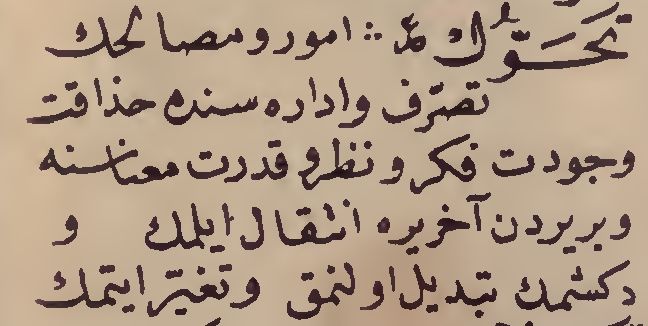 تَحَوُّل ۞ امور و مصالحك
تصرف و اداره سنده حذاقت
وجودت فكر و نظر و قدرت معناسنه
و بر يردن آخر يره انتقال ايلمك و
دكشمك تبديل اولنمق و تغيّر ايتمك